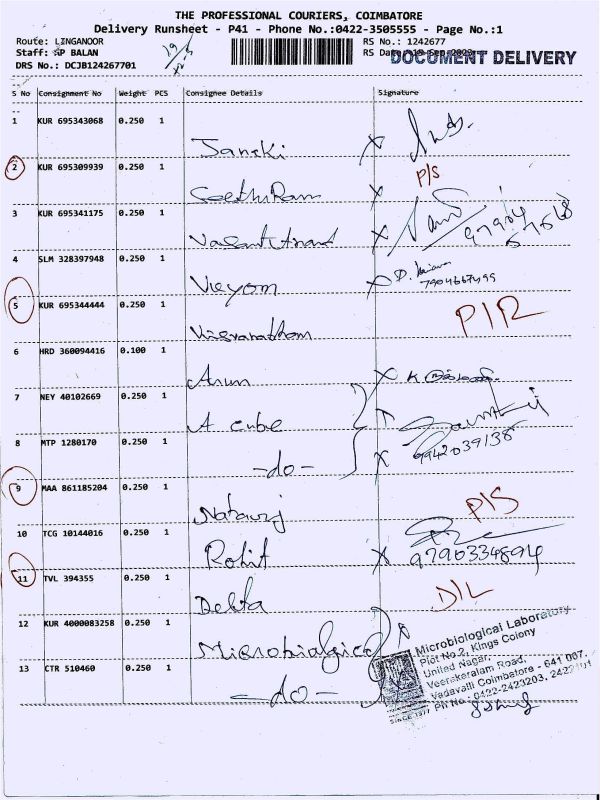 THE PROFESSIONAL COURIERS, COIMBATORE
Delivery Runsheet - P41 - Phone No.:0422-3505555 - Page No.:1
Route: LINGANOOR RS No.: 1242677
Staff: SP BALAN RS Date
DRS No.: DCJB124267701
DOCUMENT DELIVERY
S No Consignment No Weight PCS Consignee Details Signature
1 KUR 695343068 0.250 1
Janaki
2 KUR 695309939 0.250 1 P/S
Seethu Ram
3 KUR 695341175 0.250 1
Vasant Anand
4 SLM 328397948 0.250 1
7904667499
5 KUR 695344444 0.250 1
Visvanathan
6 HRD 360094416 0.100 1
Arun
7 NEY 40102669 0.250 1
A cube
8 MTP 1280170 0.250 1
-do- 9942039138
9 MAA 861185204 0.250 1
Nataraj P/S
10 TCG 10144016 0.250 1
Rohit 9790334894
11 TVL 394355 0.250 1
Delta D/L
12 KUR 4000083258 0.250 1
Microbiological
13 CTR 510460 0.250 1
-do-
Microbiological Laboratory
Plot No.2, Kings Colony
United Nagar,
Veerakeralam Road,
Vadavalli Coimbatore - 641 007.
Ph No - 0422-2423203,
SINCE 1977